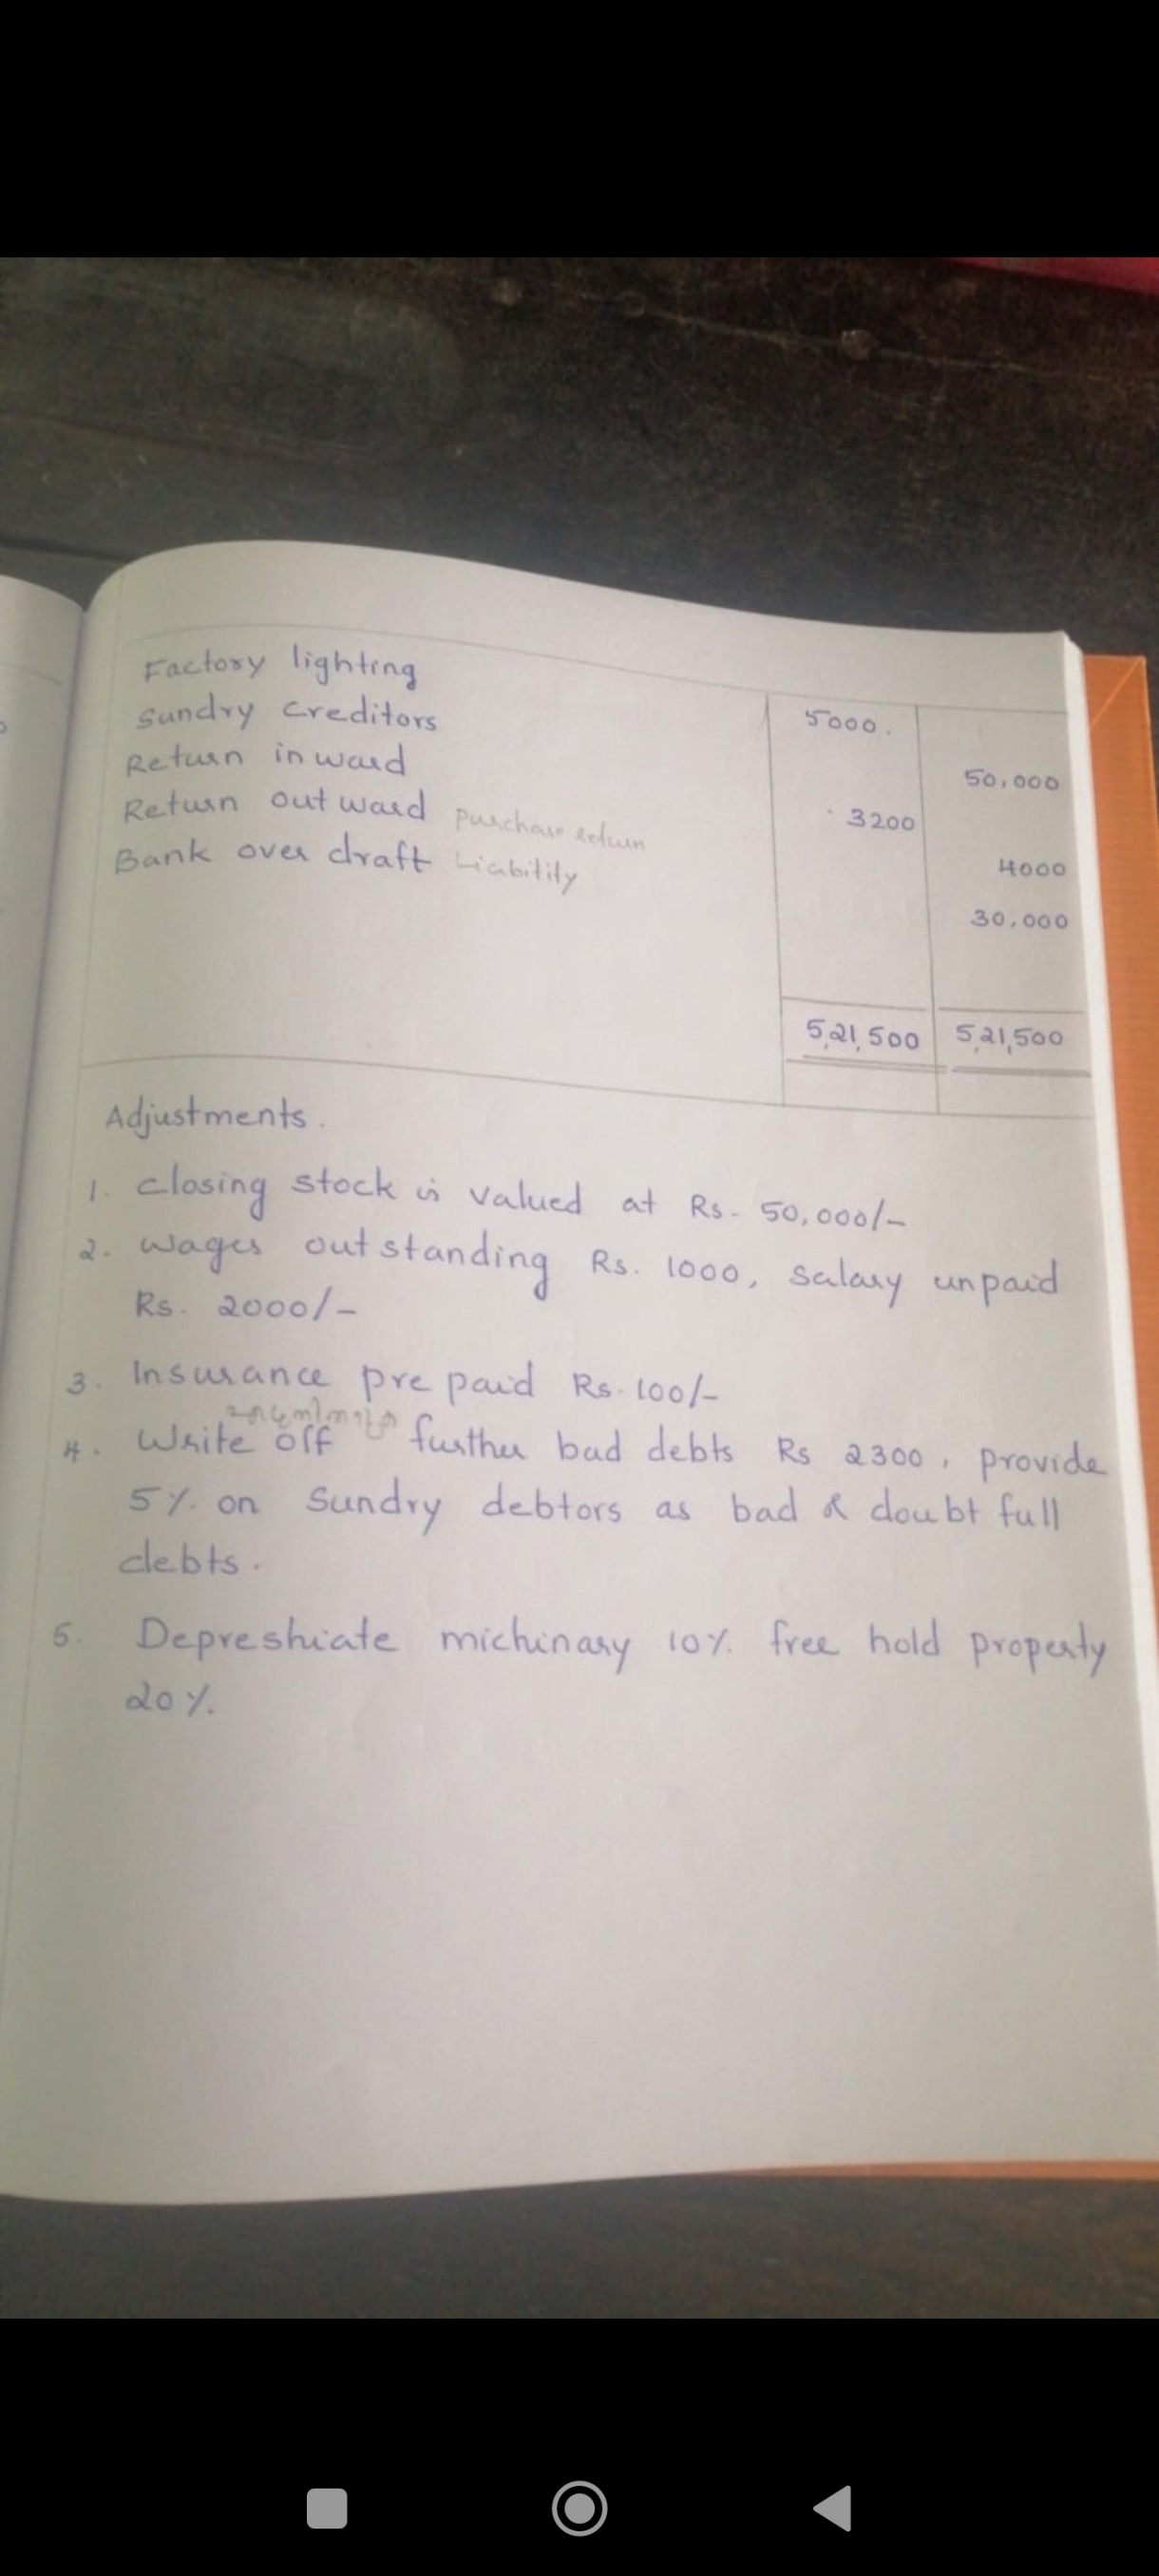 Factory lighting 5000.
Sundry Creditors 50,000
Return in ward 3200
Return out ward purchase return 4000
Bank over draft Liability 30,000
5,21,500 5,21,500
Adjustments.
1. Closing stock is valued at Rs. 50,000/-
2. Wages outstanding Rs. 1000, Salary unpaid
Rs. 2000/-
3. Insurance pre paid Rs. 100/-
4. Write off further bad debts Rs 2300, provide
5% on Sundry debtors as bad & doubt full
debts.
5. Depreshiate michinary 10% free hold property
20%.